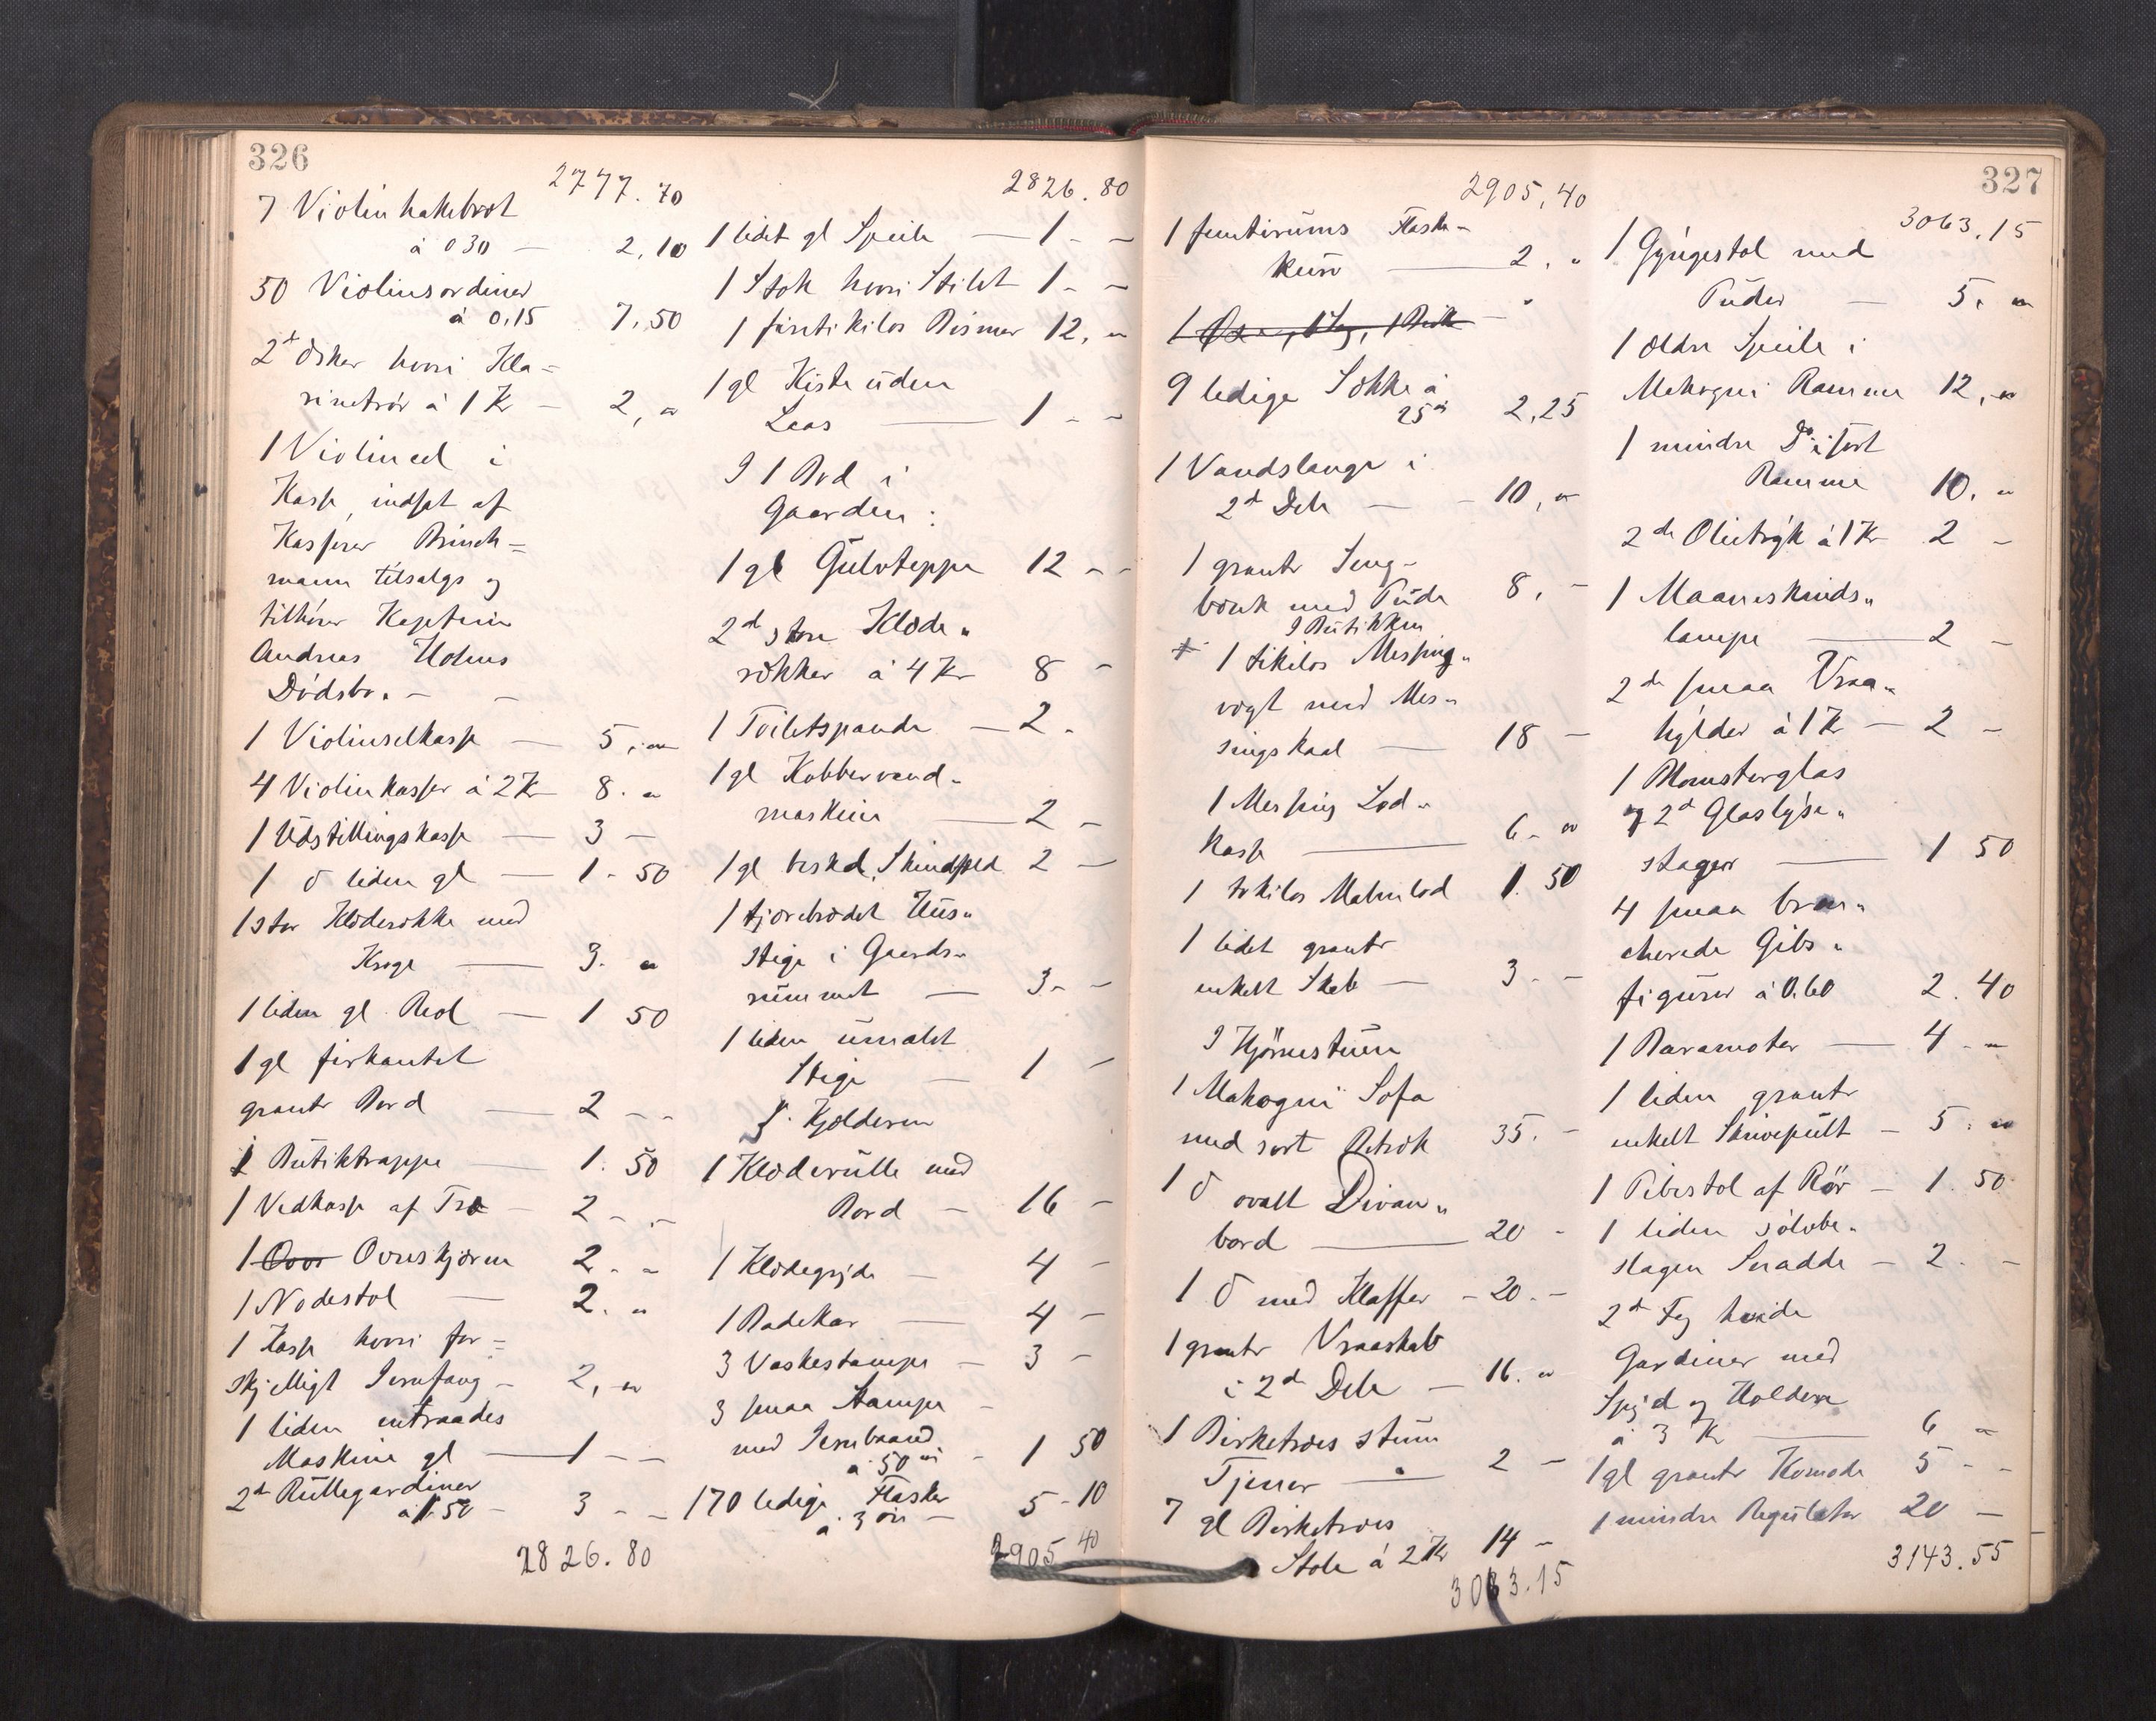 326
2777.70
7 Violinhakebret
à 0 30 — 2,10
50 Violinsordiner
à 0,15 7,50
2d Dsker hvori Kla=
rinetrör à 1 Kr — 2, "
1 Violincel i
Kasse, indsat af
Kasserer Brinch=
mann tilsalgs og
tilhörer Kaptein
Andreas Holms
Dödsbo. — —
1 Violinselkasse — 5, "
4 Violinkasser à 2 Kr 8. "
1 Udstillingskasse — 3 —
1 d liden gl — 1 - 50
1 stor Klædesökke med
Kroge — 3. "
1 liden gl Reol — 1 50
1 gl firkantet
grantr Bord — 2 - -
1 Butiktrappe — 1. 50
1 Vedkasse af Træ — 2 - -
1 Ovnskjærm 2. "
1 Nodestol — 2. "
1 Kasse hvori for=
skjelligt Jernfang — 2, "
1 liden entraades
Maskine gl — 1 - -
2d Rullegardiner
à 1.50 — 3 - -
2826.80
2826.80
1 lidet gl Speile — 1 - -
1 Stok hvori Stilet 1 - -
1 fireti kilos Bismer 12, "
1 gl Kiste uden
Laas — 1 - -
I 1 Bod i
Gaarden:
1 gl Gulvteppe 12 - -
2d store Klæde"
sökker à 4 Kr 8 -
1 Toiletspande — 2 -
1 gl Kobbervand-
maskine — 2 -
1 gl beskd. Skindfeld 2 —
1 tjærebrædet Hus"
stige i Gaards"
rummet — 3 - -
1 liden umalet
Stige — 1 -
I Kjælderen
1 Klæderulle med
Bord — 16 -
1 Klædegryde — 4 -
1 Badekar — 4 -
3 Vaskestampe — 3 -
3 smaa Stampe —
med Jernbaand
a 50 øre — 1 50
170 ledige Flasker
a 3 öre — 5 - 10
2905 40
327
2905,40
1 femtirums Flaske-
kurv — 2. "
9 ledige Sökke à
25 ø 2,25
1 Vandslange i
2d Dele — 10, "
1 grantr Seng-
bænk med Pude 8, -
I Butikken
+ 1 tikilos Messing"
vægt med Mes"
singskaal — 18 -
1 Messing Lod"
kasse — 6 - "
1 tokilos Malmlod 1. 50
1 lidet grantr
enkelt Skab — 3 - -
I Hjörnestuen
1 Mahogni Sofa
med sort Betræk 35. -
1 d ovalt Divan"
bord — 20 -
1 d med Klaffer — 20. -
1 grantr Vraaskab
i 2d Dele — 16. "
1 Birketræes stum
Tjener — 2 -
7 gl Birketræes
Stole à 2 Kr 14 -
3063.15
3063,15
1 Gyngestol med
Puder — 5. "
1 ældre Speile i
Mahogni Ramme 12, "
1 mindre Do i sort
Ramme 10. "
2de Olietryk à 1 Kr 2 -
1 Maaneskinds"
lampe — 2 -
2de smaa Vraa"
hylder à 1 Kr — 2 -
1 Blomsterglas
og 2d Glaslyse"
stager — 1 50
4 smaa bron"
cherede Gibs"
figurer à 0.60 2. 40
1 Baramoter — 4 - "
1 liden grantr
enkelt Skrivepult — 5. "
1 Pibestol af Rör — 1. 50
1 liden sölvbe"
slagen Snadde — 2. -
2d Fag hvide
Gardiner med
Spyd og Holdere
à 3 Kr — 6 "
1 gl grantr Komode 5 - -
1 mindre Regulator 20 —
3143.55